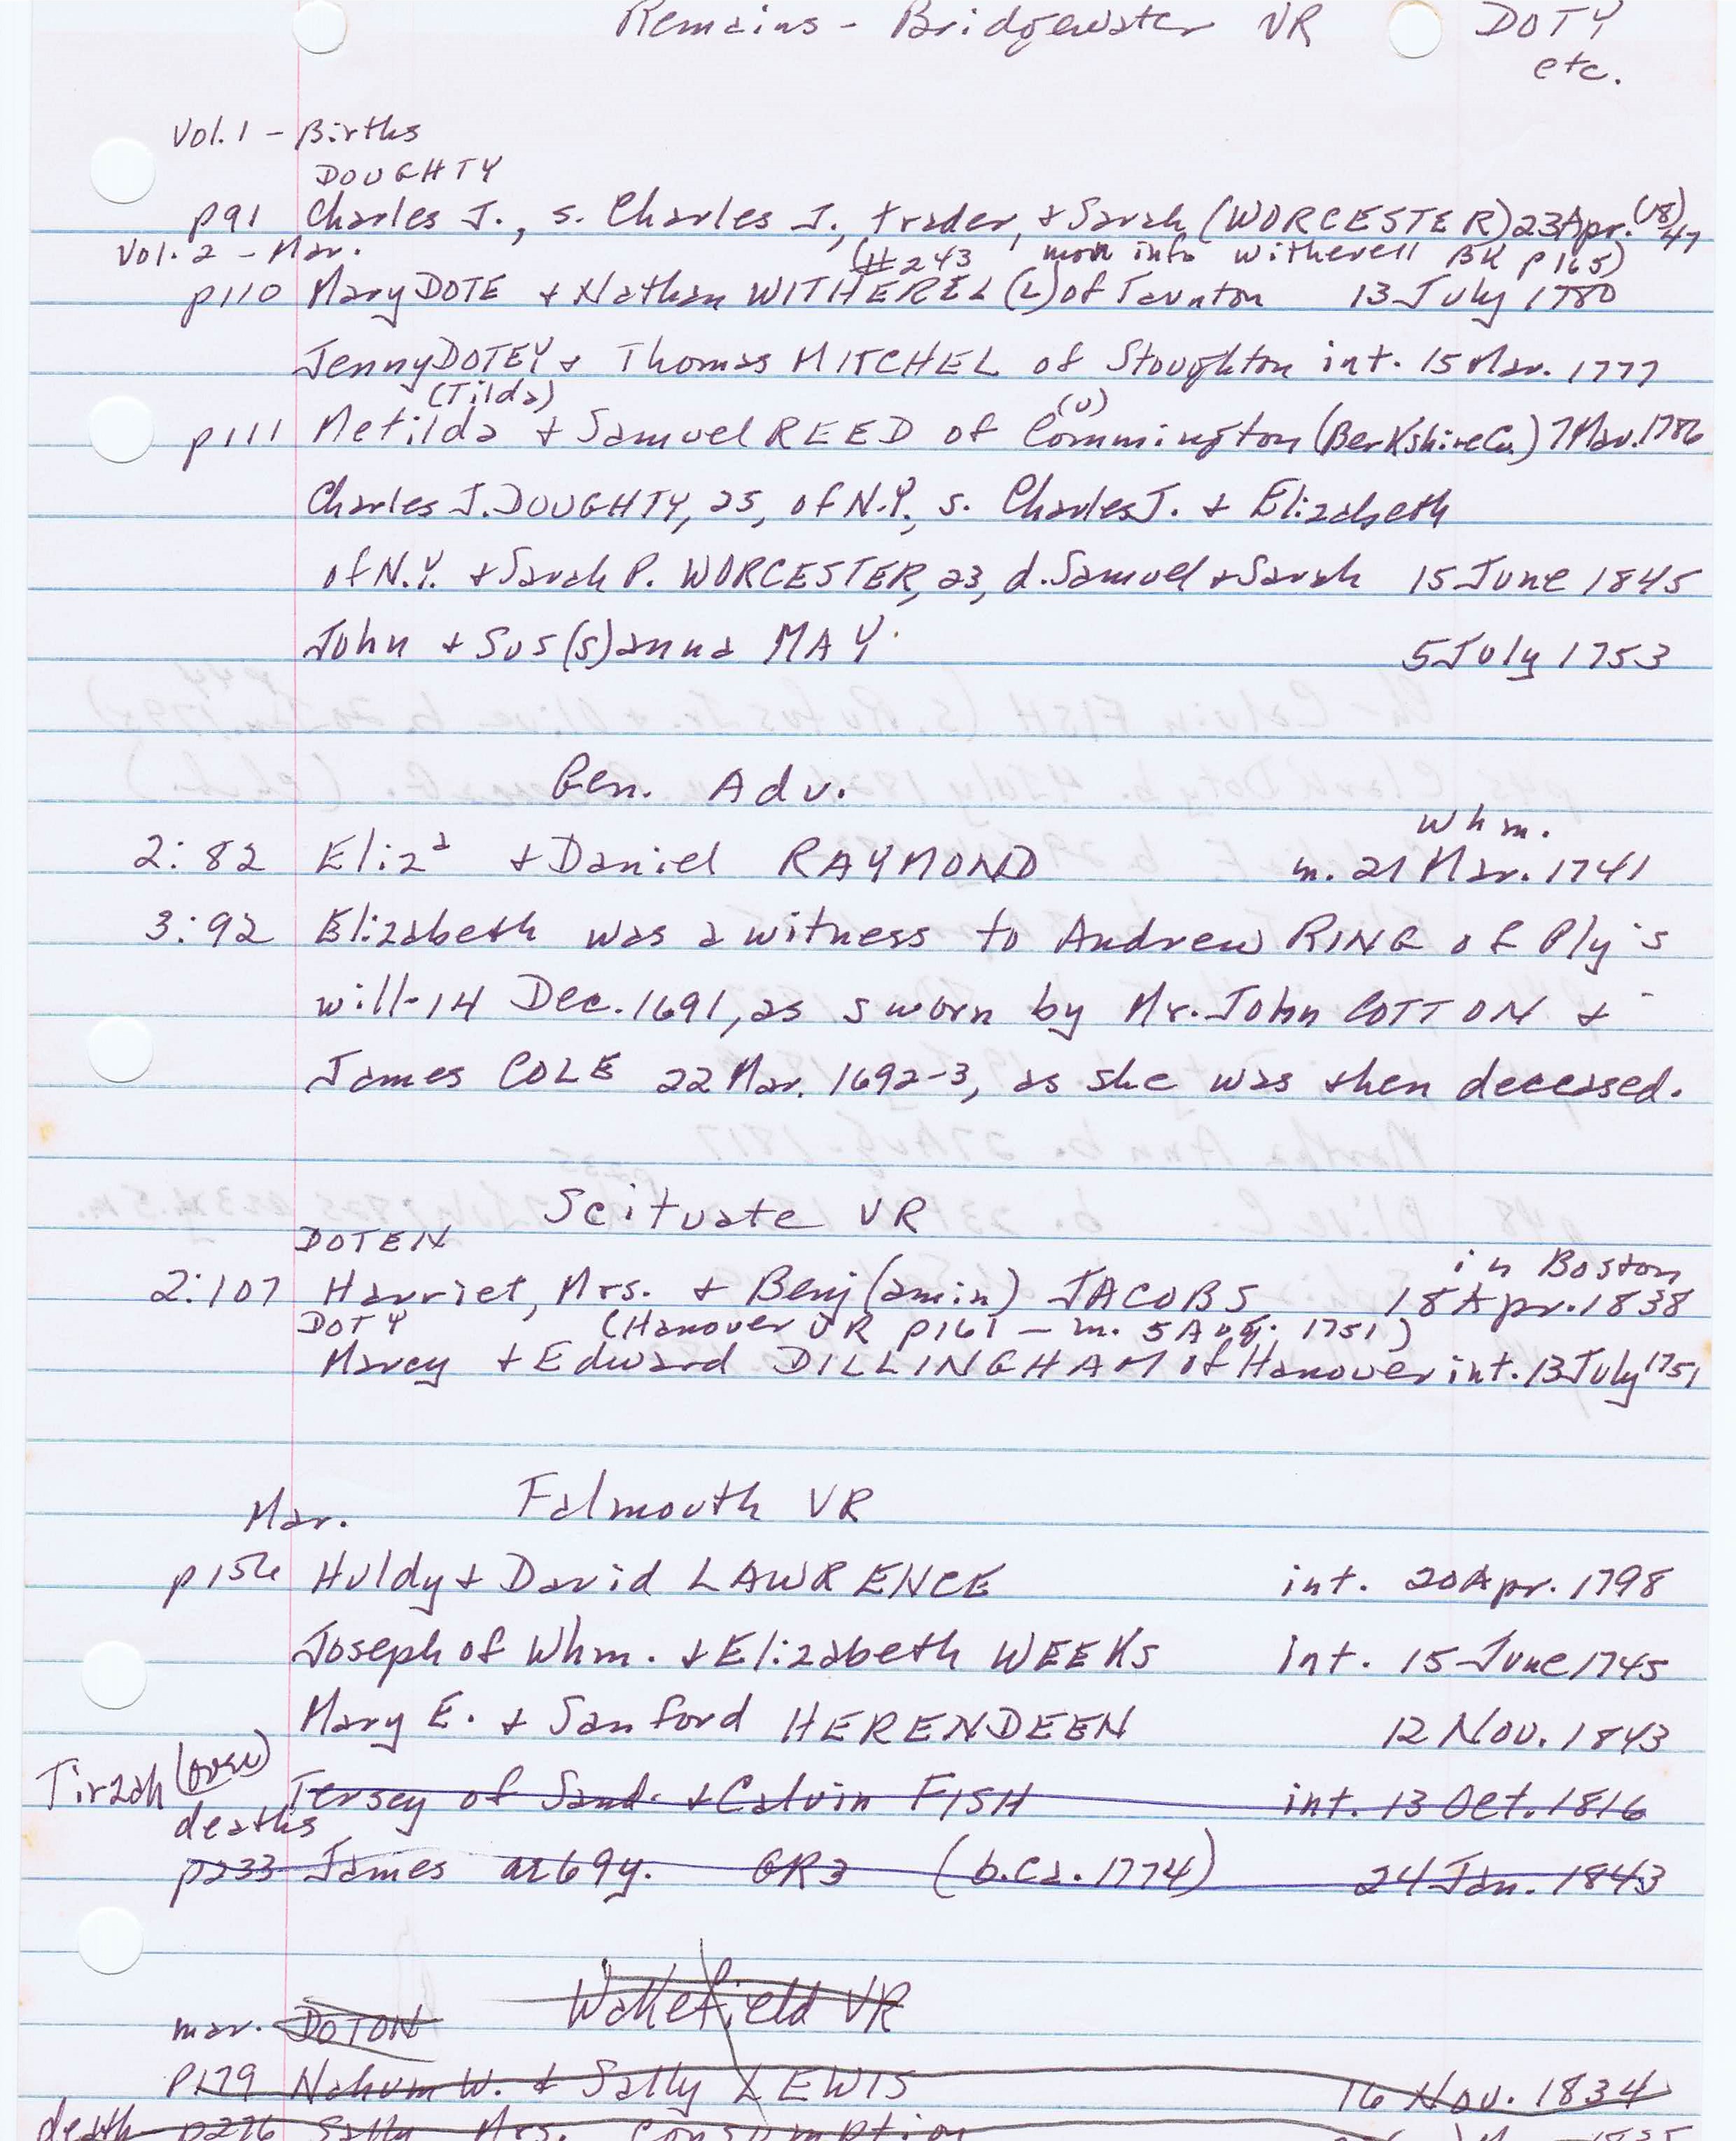 Remains - Bridgewater VR DOTY
etc.
Vol. 1 - Births
DOUGHTY
p91 Charles J., s. Charles J., trader, + Sarah (WORCESTER) 23 Apr. (18)47
Vol. 2 - Mar. (#243 more info witherell BK p165)
p110 Mary DOTE + Nathan WITHEREL(L) of Taunton 13 July 1780
Jenny DOTEY + Thomas MITCHEL of Stoughton int. 15 Mar. 1777
(Tilda) (U)
p111 Metilda + Samuel REED of Commington (Berkshire Co.) 7 Mar. 1786
Charles J. DOUGHTY, 25, of N.Y., s. Charles J. + Elizabeth
of N.Y. + Sarah P. WORCESTER, 23, d. Samuel + Sarah 15 June 1845
John + Sus(s)anna MAY 5 July 1753
Gen. Adv.
Whm.
2:82 Eliza + Daniel RAYMOND m. 21 Mar. 1741
3:92 Elizabeth was a witness to Andrew RING of Ply's
will-14 Dec. 1691, as sworn by Mr. John COTTON +
James COLE 22 Mar. 1692-3, as she was then deceased.
Scituate VR
DOTEN
in Boston
2:107 Harriet, Mrs. + Benj(amin) JACOBS 18 Apr. 1838
DOTY (Hanover VR p161 - m. 5 Aug. 1751)
Marcy + Edward DILLINGHAM of Hanover int. 13 July 1751
Falmouth VR
Mar.
p156 Huldy + David LAWRENCE int. 20 Apr. 1798
Joseph of Whm. + Elizabeth WEEKS int. 15 June 1745
Mary E. + Sanford HERENDEEN 12 Nov. 1843
Tirzah (over) Tersey of Sand. + Calvin FISH int. 13 Oct. 1816
deaths
p233 James ae 69y. GR3 (b.ca. 1774) 24 Jan. 1843
Wakefield VR
mar. DOTON
p179 Nahum W. + Sally LEWIS 16 Nov. 1834
death p276 Sally Mrs. consumption